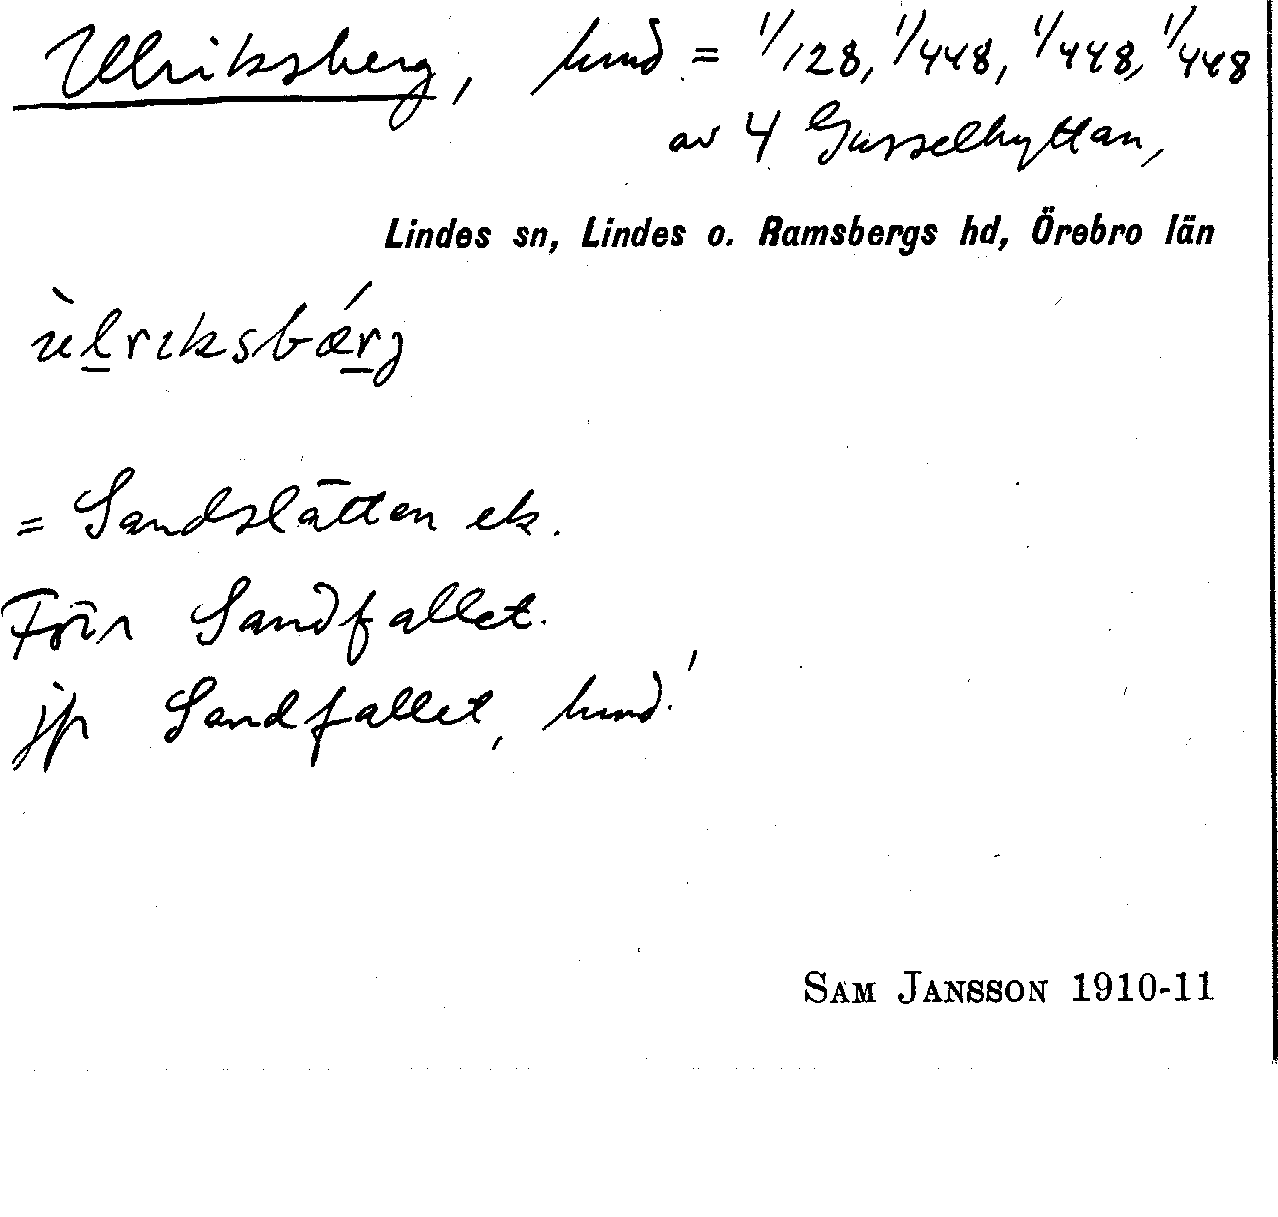 Ulriksberg, hmd = 1/128, 1/448, 1/448, 1/448
av 4 Gusselhyttan,
Lindes sn, Lindes o. Ramsbergs hd, Örebro län
ùlriksbǽrj
= Sandslätten ek.
Förr Sandfallet.
jfr Sandfallet, hmd!
SAM JANSSON 1910-11